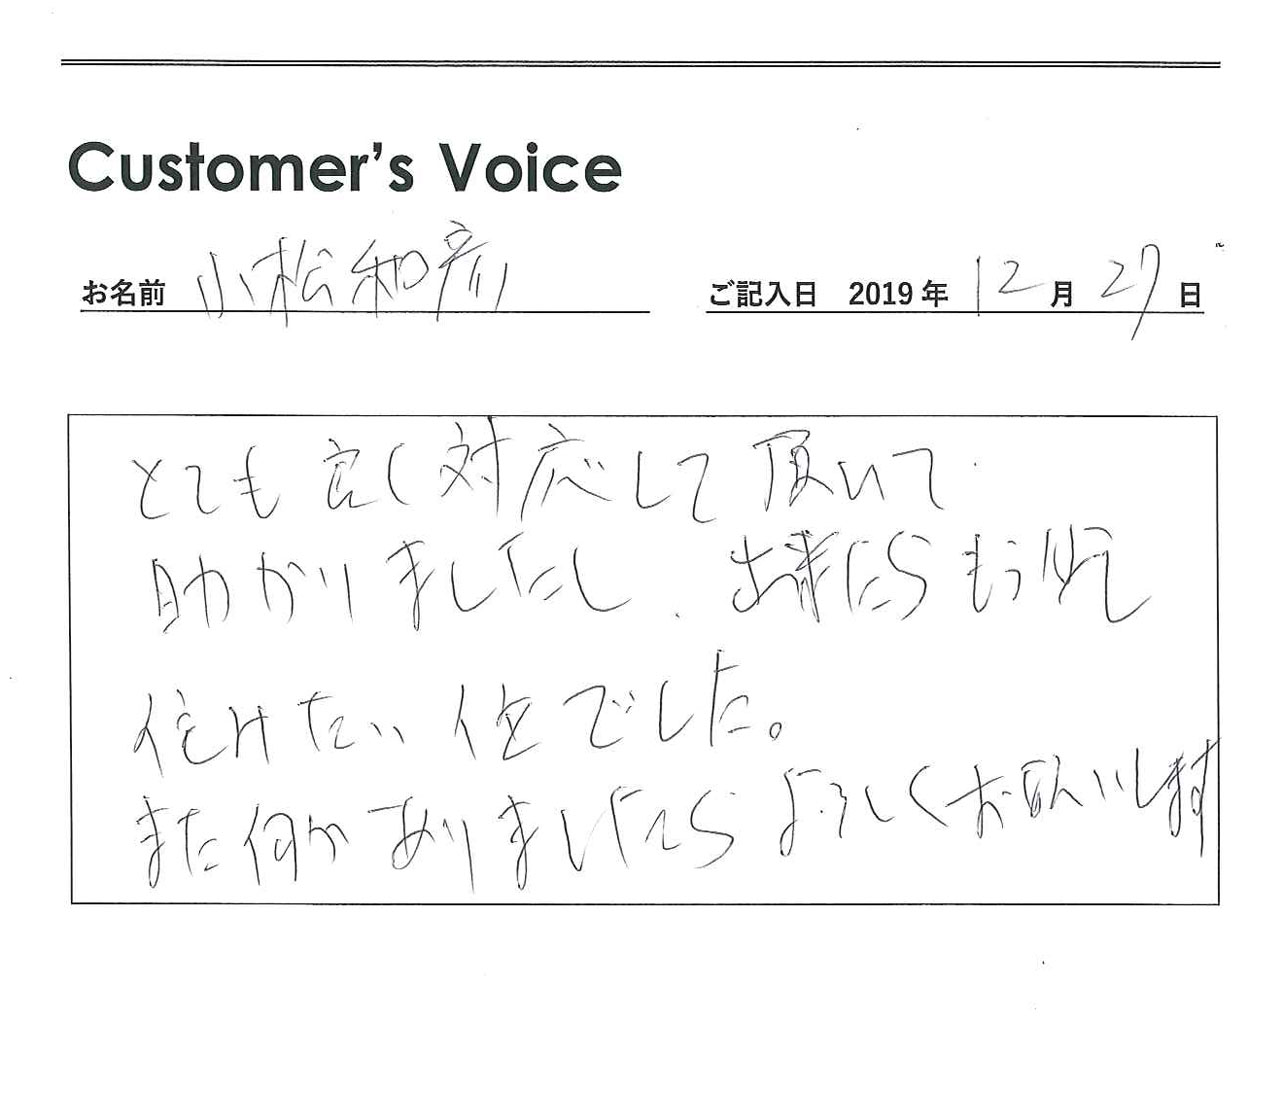 Customer's Voice
お名前 小松和彦
ご記入日 2019年 12月 27日
とても良く対応して頂いて
助かりましたし、出来たらもう少し
住けたい位でした。
また何かありましたらよろしくお願いします